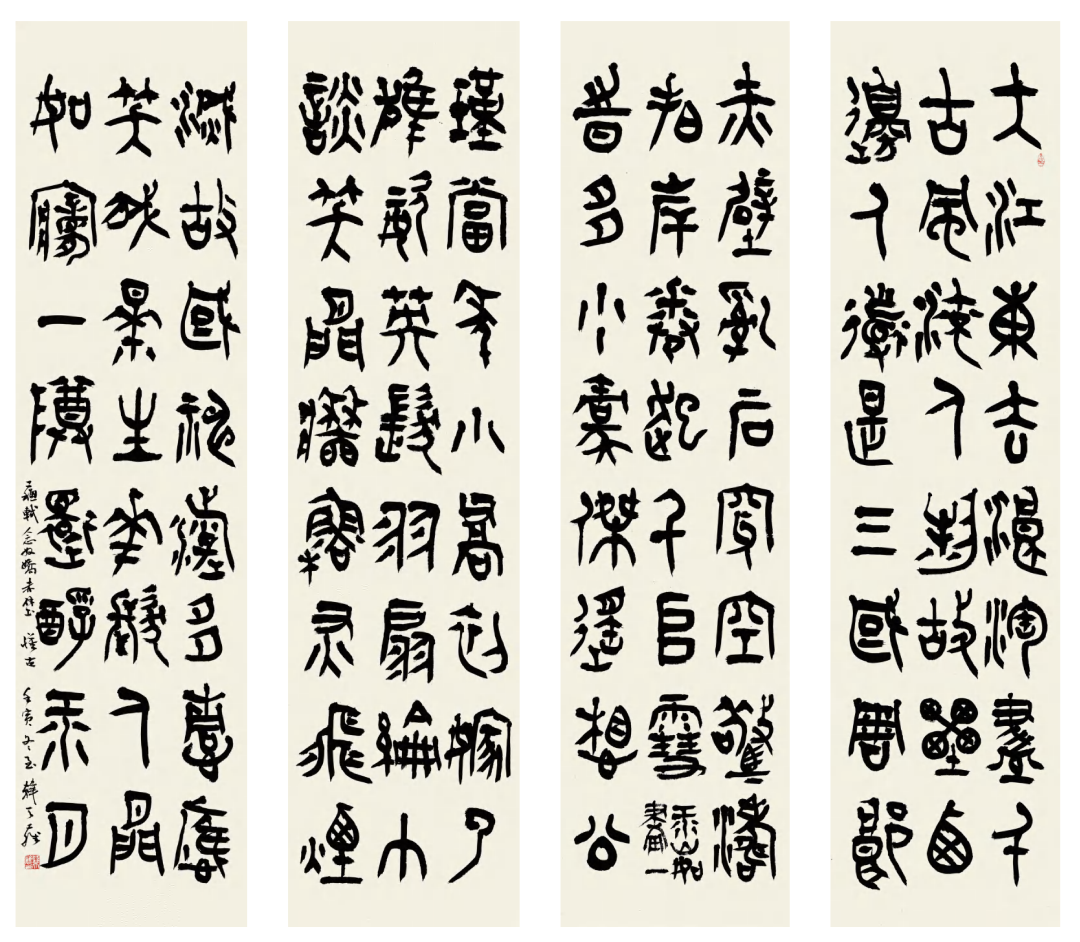 大江東去浪淘盡千
古風流人物故壘西
邊人道是三國周郎
赤壁亂石穿空驚濤
拍岸卷起千堆雪江山如畫一
時多少豪傑遙想公
瑾當年小喬初嫁了
雄姿英發羽扇綸巾
談笑間檣櫓灰飛煙
滅故國神遊多情應
笑我早生華髮人間
如夢一尊還酹江月
蘇軾念奴嬌赤壁懷古 壬寅冬至